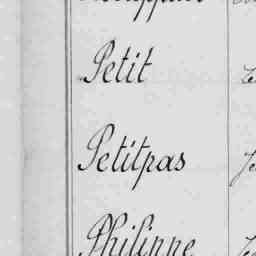 Petit
Petitpas
Philippe